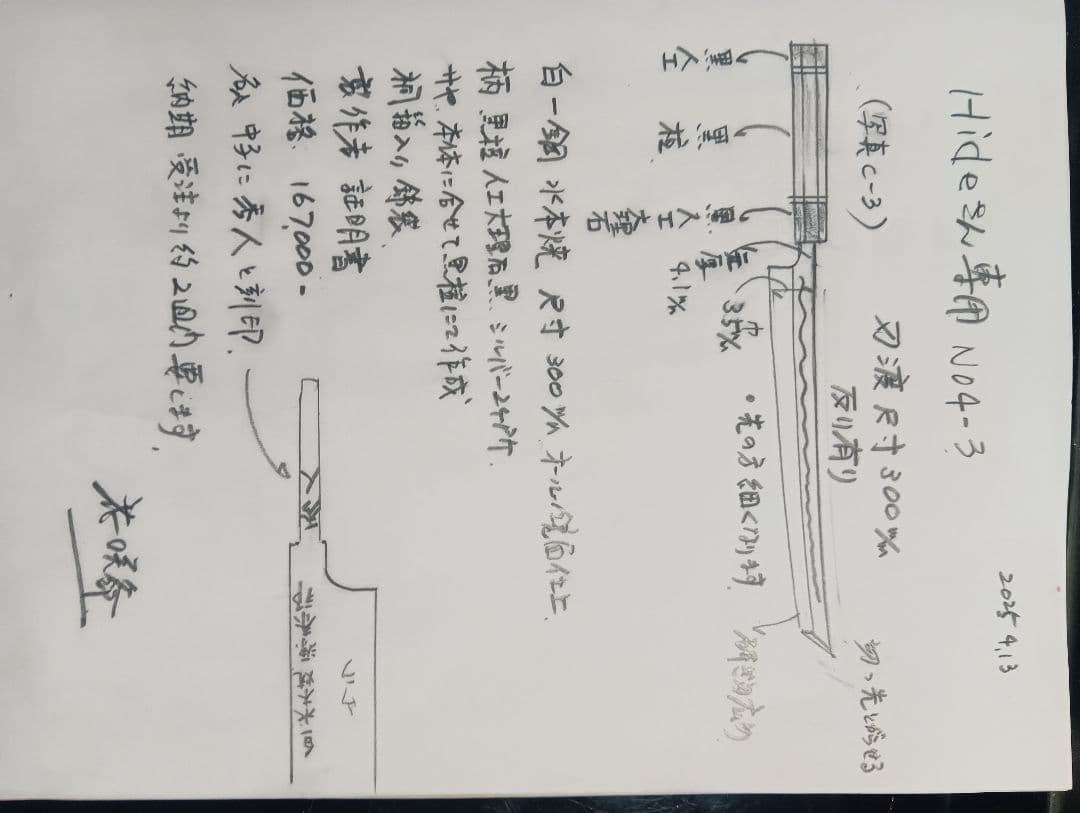 Hideさん専用 NO4-3
2025 4.13
(写真C-3)
刃渡尺寸300m/m
反り有り
切っ先とがらせる
黒人工
黒檀
黒人工大理石
厚 4.1m/m
巾 35m/m
・先の方細くなります
白一鋼 水本焼 尺寸300m/m オール鏡面仕上
柄 黒檀 人工大理石黒 シルバー2ヶ所
サヤ 本体に合せて黒檀にて作成
桐箱入り 錦袋
製作者 証明書
価格 167,000-
名入 中子に秀人と刻印
納期 受注より約2週内要します
秀人